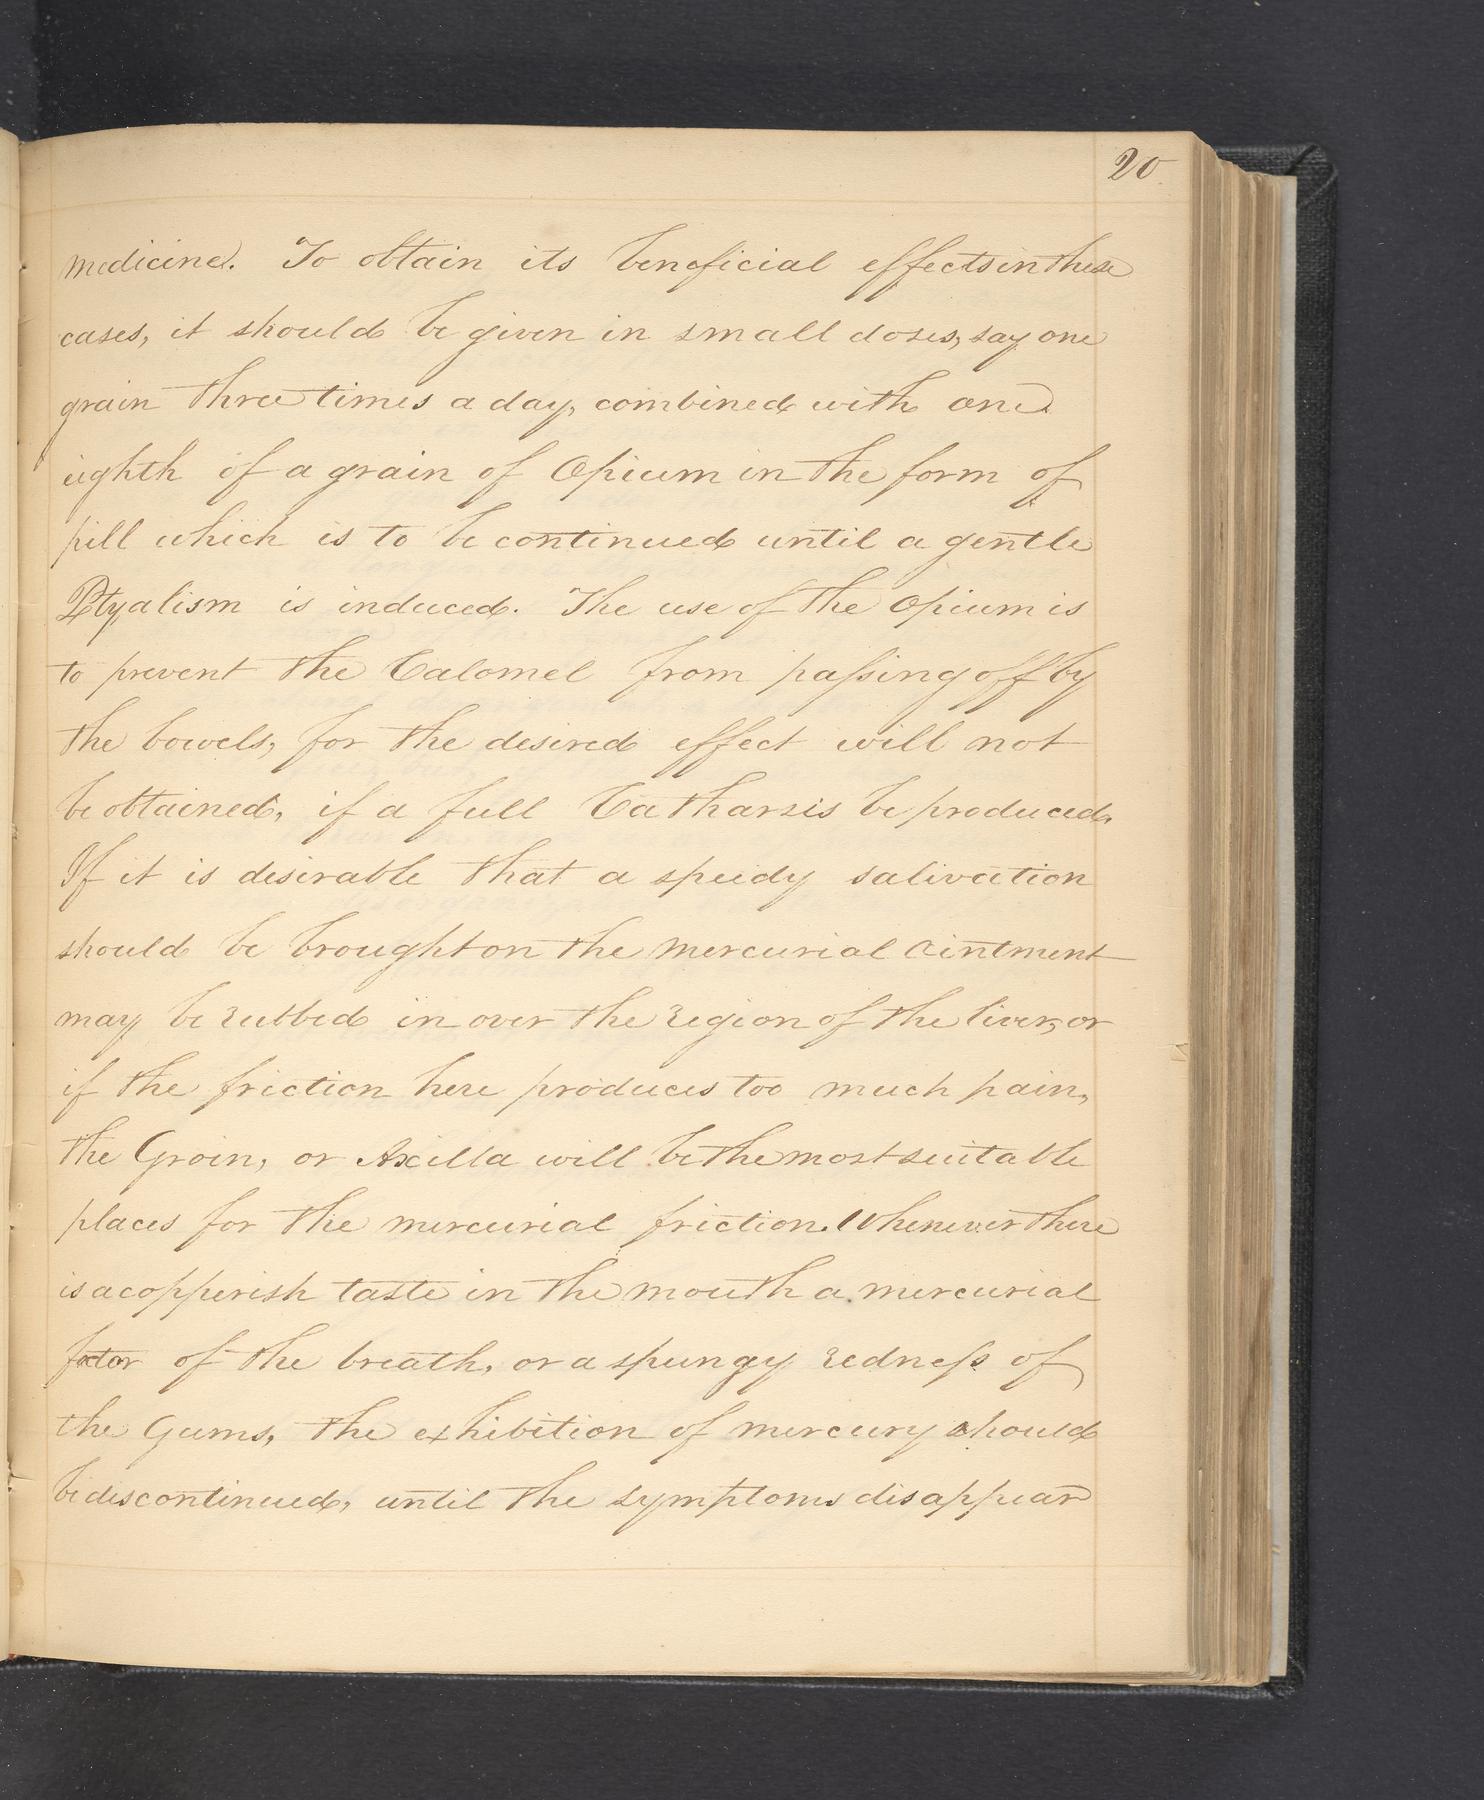 20
medicine. To obtain its beneficial effects in these
cases, it should be given in small doses, say one
grain three times a day, combined with one
eighth of a grain of Opium in the form of
pill which is to be continued until a gentle
Ptyalism is induced. The use of the opium is
to prevent the Calomel from paſsing off by
the bowels, for the desired effect will not
be obtained, if a full Catharsis be produced.
If it is desirable that a speedy salivation
should be brought on the mercurial ointment
may be rubbed in over the region of the liver, or
if the friction here produces too much pain,
the Groin, or Axilla will be the most suitable
places for the mercurial friction. Whenever there
is a copperish taste in the mouth a mercurial
foetor of the breath, or a spungy redneſs of
the Gums, the exhibition of mercury should
be discontinued, until the symptoms disappear